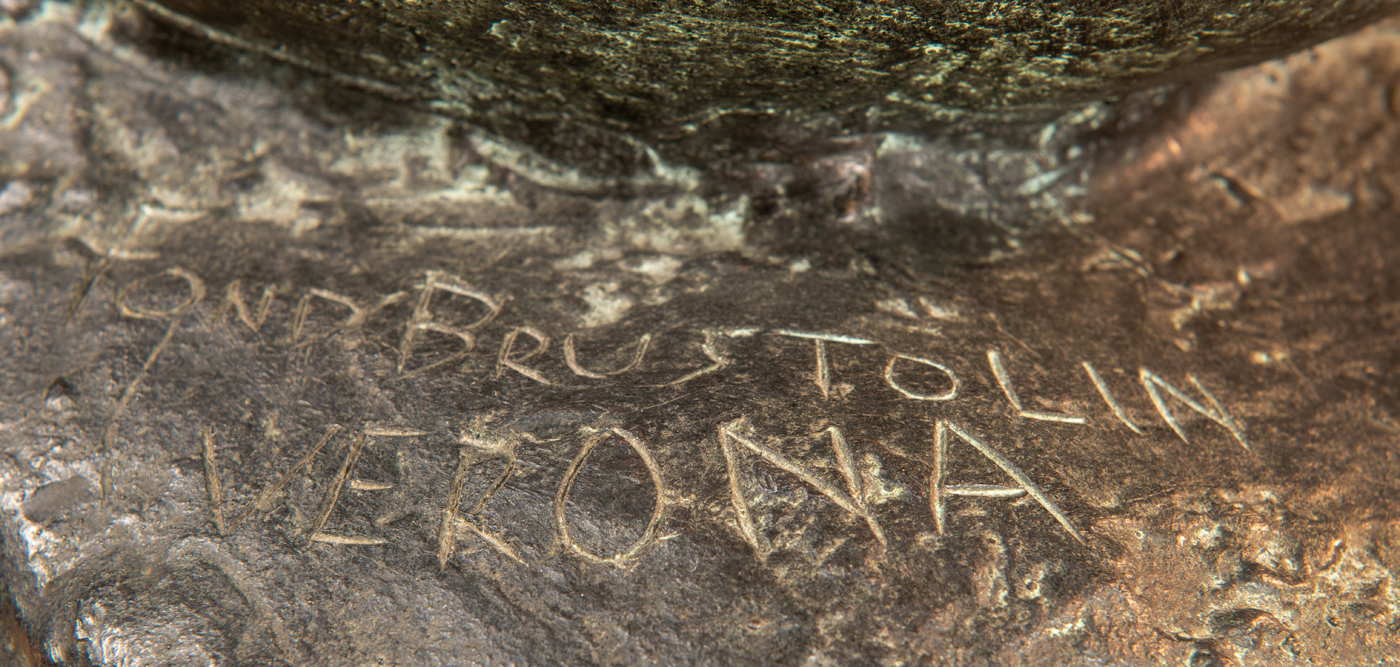 FOND BRUSTOLIN
VERONA